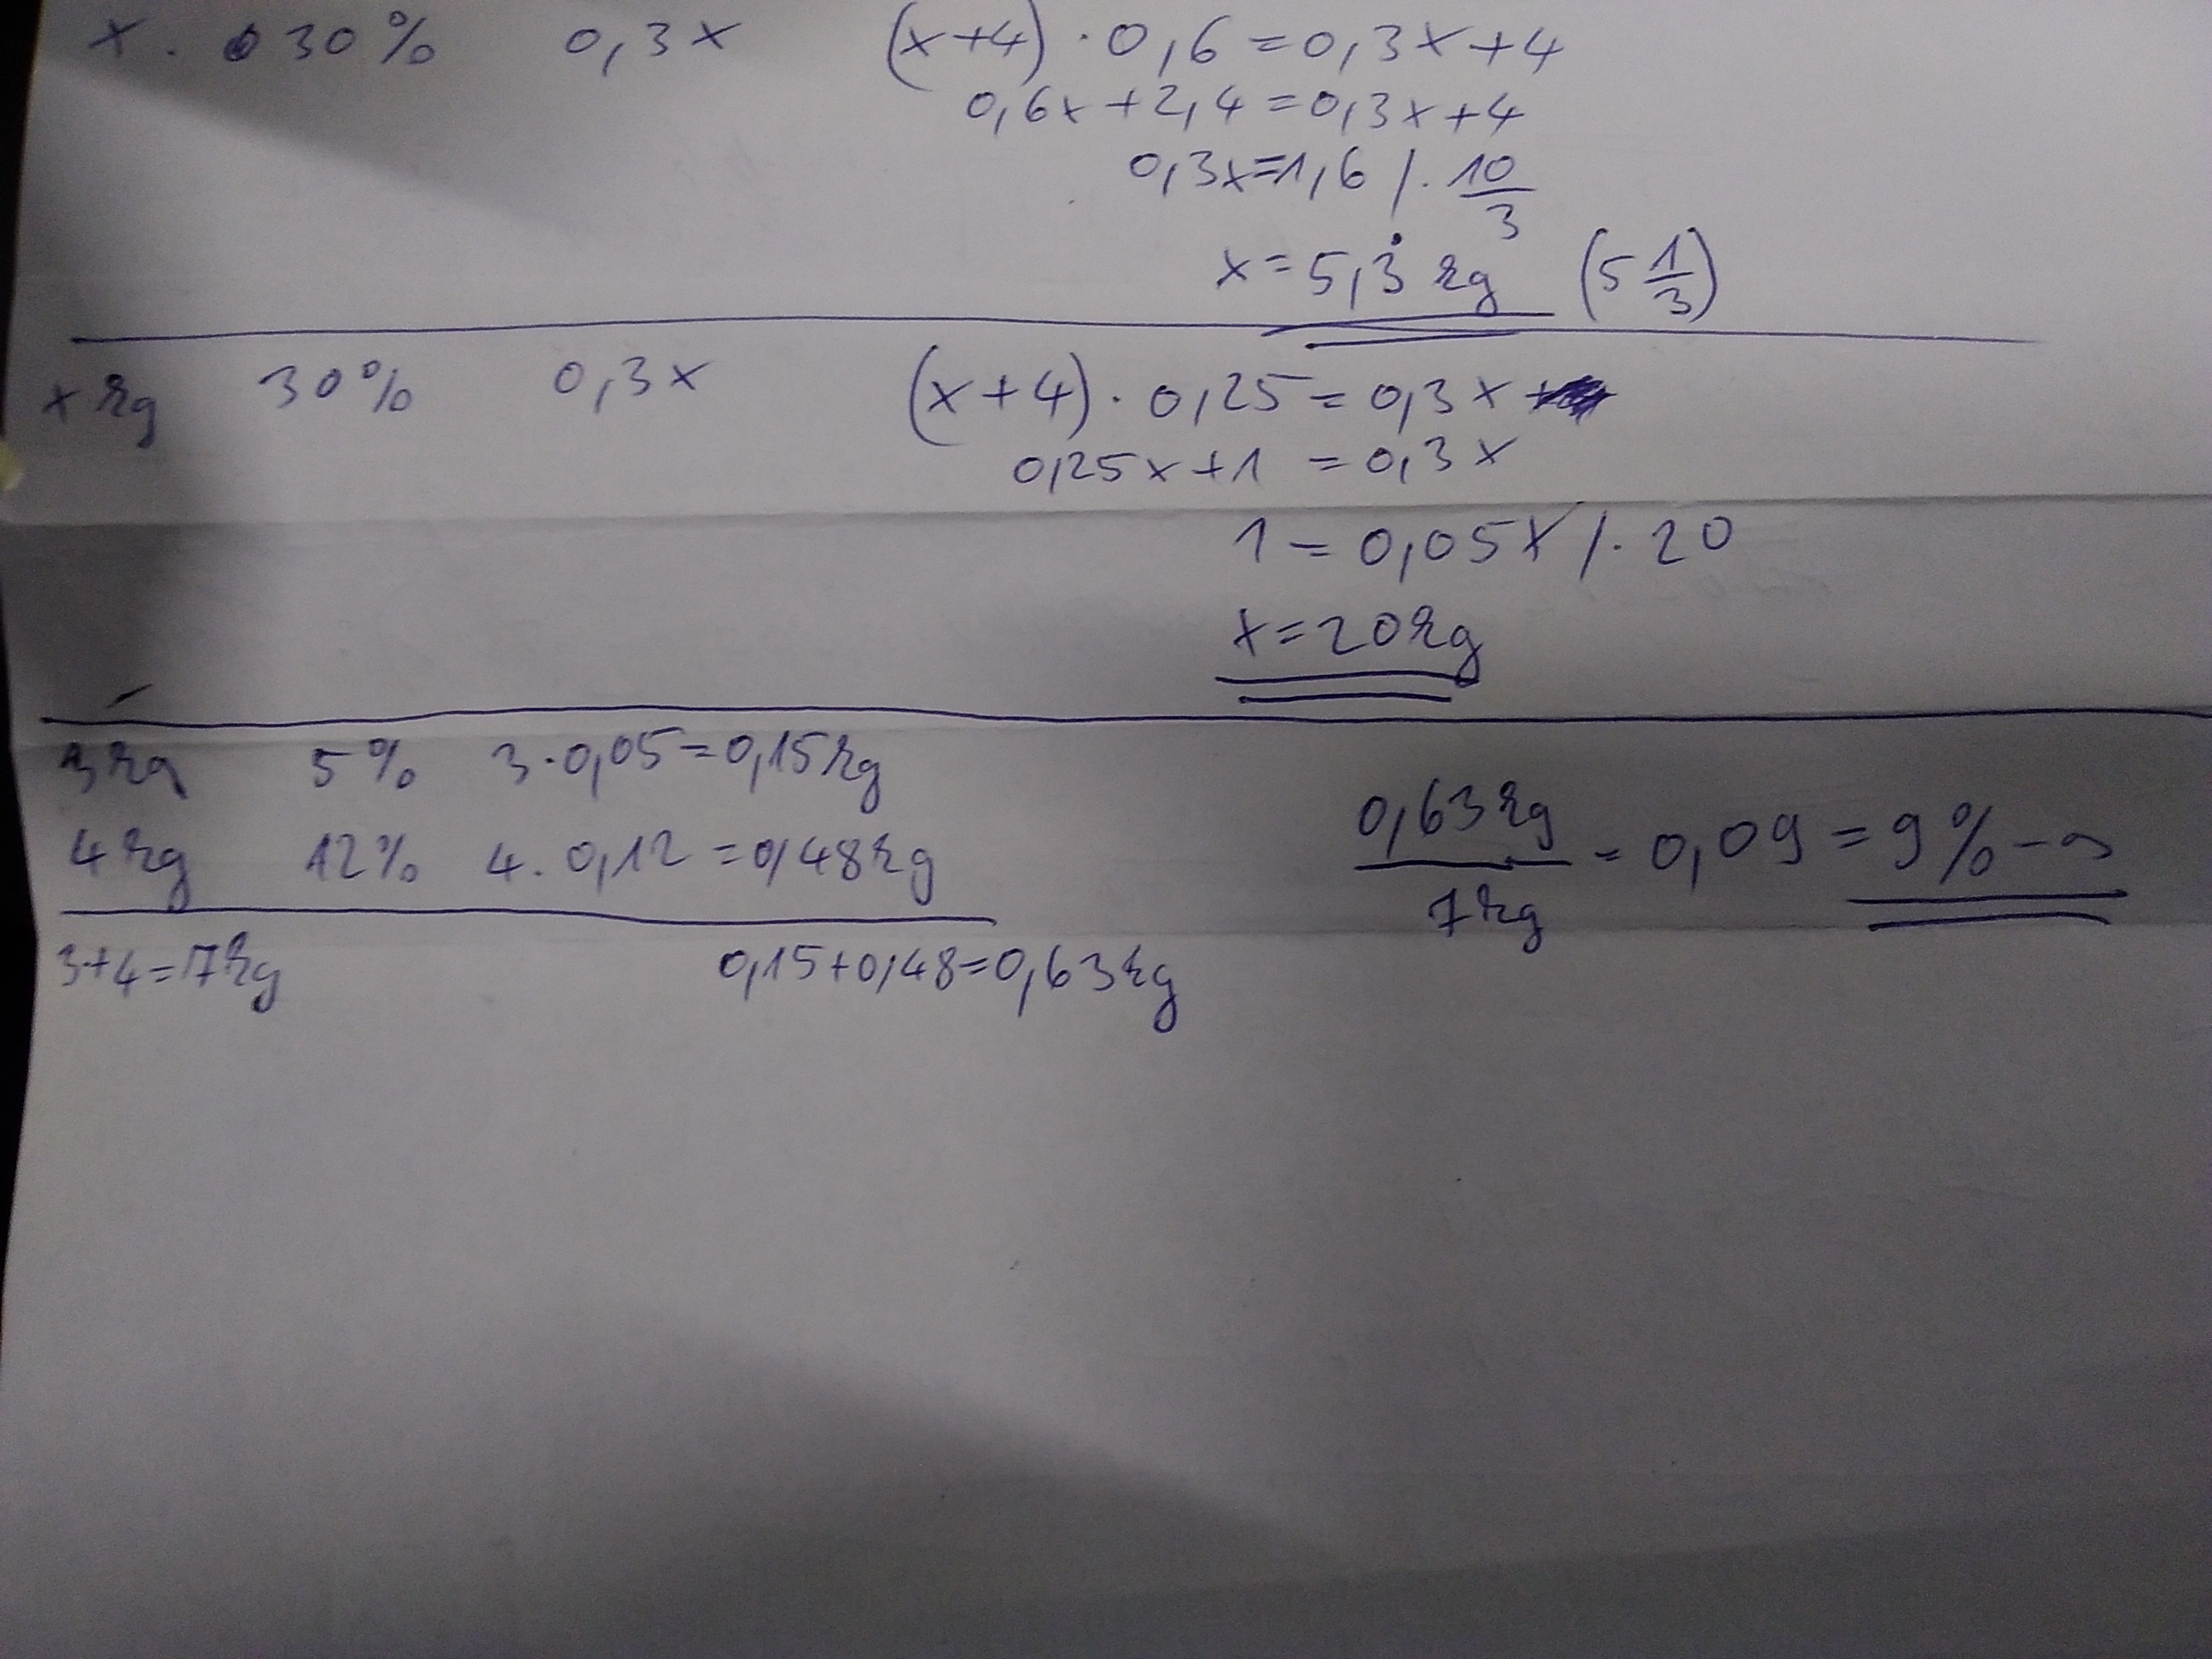 x · 30% 0,3x (x+4) · 0,6 = 0,3x+4
0,6x+2,4=0,3x+4
0,3x=1,6 /· 10/3
x=5,3̇ kg (5 1/3)
x kg 30% 0,3x (x+4) · 0,25 = 0,3x
0,25x+1 = 0,3x
1 = 0,05x /· 20
x=20kg
3kg 5% 3·0,05=0,15kg
4kg 12% 4·0,12=0,48kg
0,63kg/7kg = 0,09 = 9%-os
3+4=7kg 0,15+0,48=0,63kg